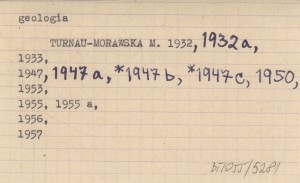 geologia
TURNAU-MORAWSKA M. 1932, 1932a,
1933,
1947, 1947a, *1947b, *1947c, 1950,
1953,
1955, 1955 a,
1956,
1957